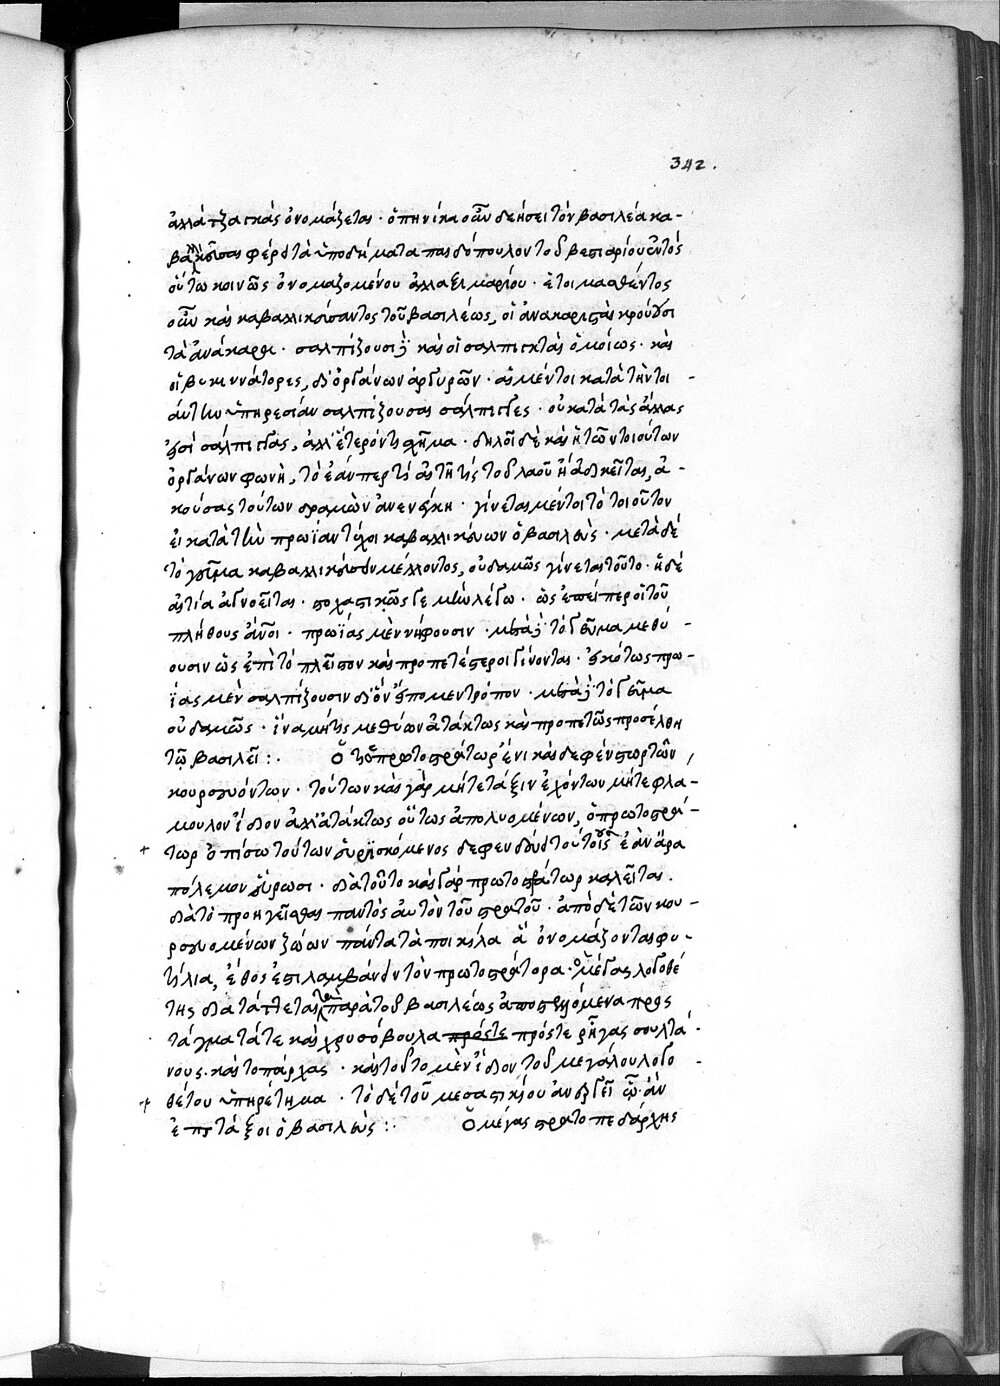 342.
ἀλλάτζα καὶ ὀνομάζεται · ὁπηνίκα οὖν δεήσει τὸν βασιλέα κα-
βαλλικεῦσαι φέρει τὰ ὑποδήματα παιδόπουλον τοῦ βεστιαρίου αὐτὸς
οὕτω κοινῶς ὀνομαζομένου ἀλλαξιμαρίου · ἑτοιμασθέντος
οὖν καὶ καβαλλικεύσαντος τοῦ βασιλέως, οἱ ἀνακαρισταὶ κρούουσι
τὰ ἀνάκαρα · σαλπίζουσι δὲ καὶ οἱ σαλπιγκταὶ ὁμοίως · καὶ
οἱ βυκινάτορες, δι' ὀργάνων ἀργυρῶν · αἱ μέντοι κατὰ τὴν τοι-
αύτην ὑπηρεσίαν σαλπίζουσαι σάλπιγγες · οὐ κατὰ τὰς ἄλλας
εἰσὶ σάλπιγγας, ἀλλ' ἕτερόν τι σχῆμα · δηλοῖ δὲ καὶ ἡ τῶν τοιούτων
ὀργάνων φωνὴ, τὸ ἐάνπερ τὶς ἀπὸ τῆς τοῦ λαοῦ ἠδίκηται, ἀ-
κούσας τούτων δραμὼν ἀνενέγκῃ · γίνεται μέντοι τὸ τοιοῦτον
εἰ κατὰ τὴν πρωΐαν τύχοι καβαλλικεύων ὁ βασιλεὺς · μετὰ δὲ
τὸ γεῦμα καβαλλικεύειν μέλλοντος, οὐδαμῶς γίνεται τοῦτο · ἡ δὲ
αἰτία ἀγνοεῖται · στοχαστικῶς γε μὴν λέγω · ὡς ἐπείπερ οἱ τοῦ
πλήθους ἄνθρωποι · πρωΐας μὲν νήφουσιν · μετὰ δὲ τὸ γεῦμα μεθύ-
ουσιν ὡς ἐπὶ τὸ πλεῖστον καὶ προπετέστεροι γίνονται · εἰκότως πρω-
ΐας μὲν σαλπίζουσιν δι' ὃν εἴπομεν τρόπον · μετὰ δὲ τὸ γεῦμα
οὐδαμῶς · ἵνα μήτις μεθύων ἀτάκτως καὶ προπετῶς προσέλθῃ
τῷ βασιλεῖ :· Ὁ πρωτοστράτωρ ἔνι καὶ δεφένστωρ τῶν
κουρσευόντων · τούτων καὶ γὰρ μήτε τάξιν ἐχόντων μήτε φλά-
μουλον ἴδιον ἀλλ' ἀτάκτως οὕτως ἀπολυομένων, ὁ πρωτοστρά-
τωρ ὀπίσω τούτων εὑρισκόμενος δεφενδεύει τούτους ἐὰν ἄρα
πόλεμον εὕρωσι · διὰ τοῦτο καὶ γὰρ πρωτοστράτωρ καλεῖται ·
διὰ τὸ προηγεῖσθαι παντὸς αὐτὸν τοῦ στρατοῦ · ἀπὸ δὲ τῶν κου-
ρσευομένων ζώων πάντα τὰ ποικίλα ἃ ὀνομάζονται φυ-
τίλια, ἔθος ἐπιλαμβάνειν τὸν πρωτοστράτορα · Ὁ μέγας λογοθέ-
της διατάττεται τὰ παρὰ τοῦ βασιλέως ἀποστελλόμενα προς
τάγματά τε καὶ χρυσόβουλα πρόστε πρός τε ῥῆγας σουλτά-
νους · καὶ τοπάρχας · καὶ τοῦτο μὲν ἴδιον τοῦ μεγάλου λογο-
θέτου ὑπηρέτημα · τὸ δὲ τοῦ μεσαστικίου ἀνενεργεῖ ᾧ ἂν
ἐπιτάξοι ὁ βασιλεὺς :· Ὁ μέγας στρατοπεδάρχης